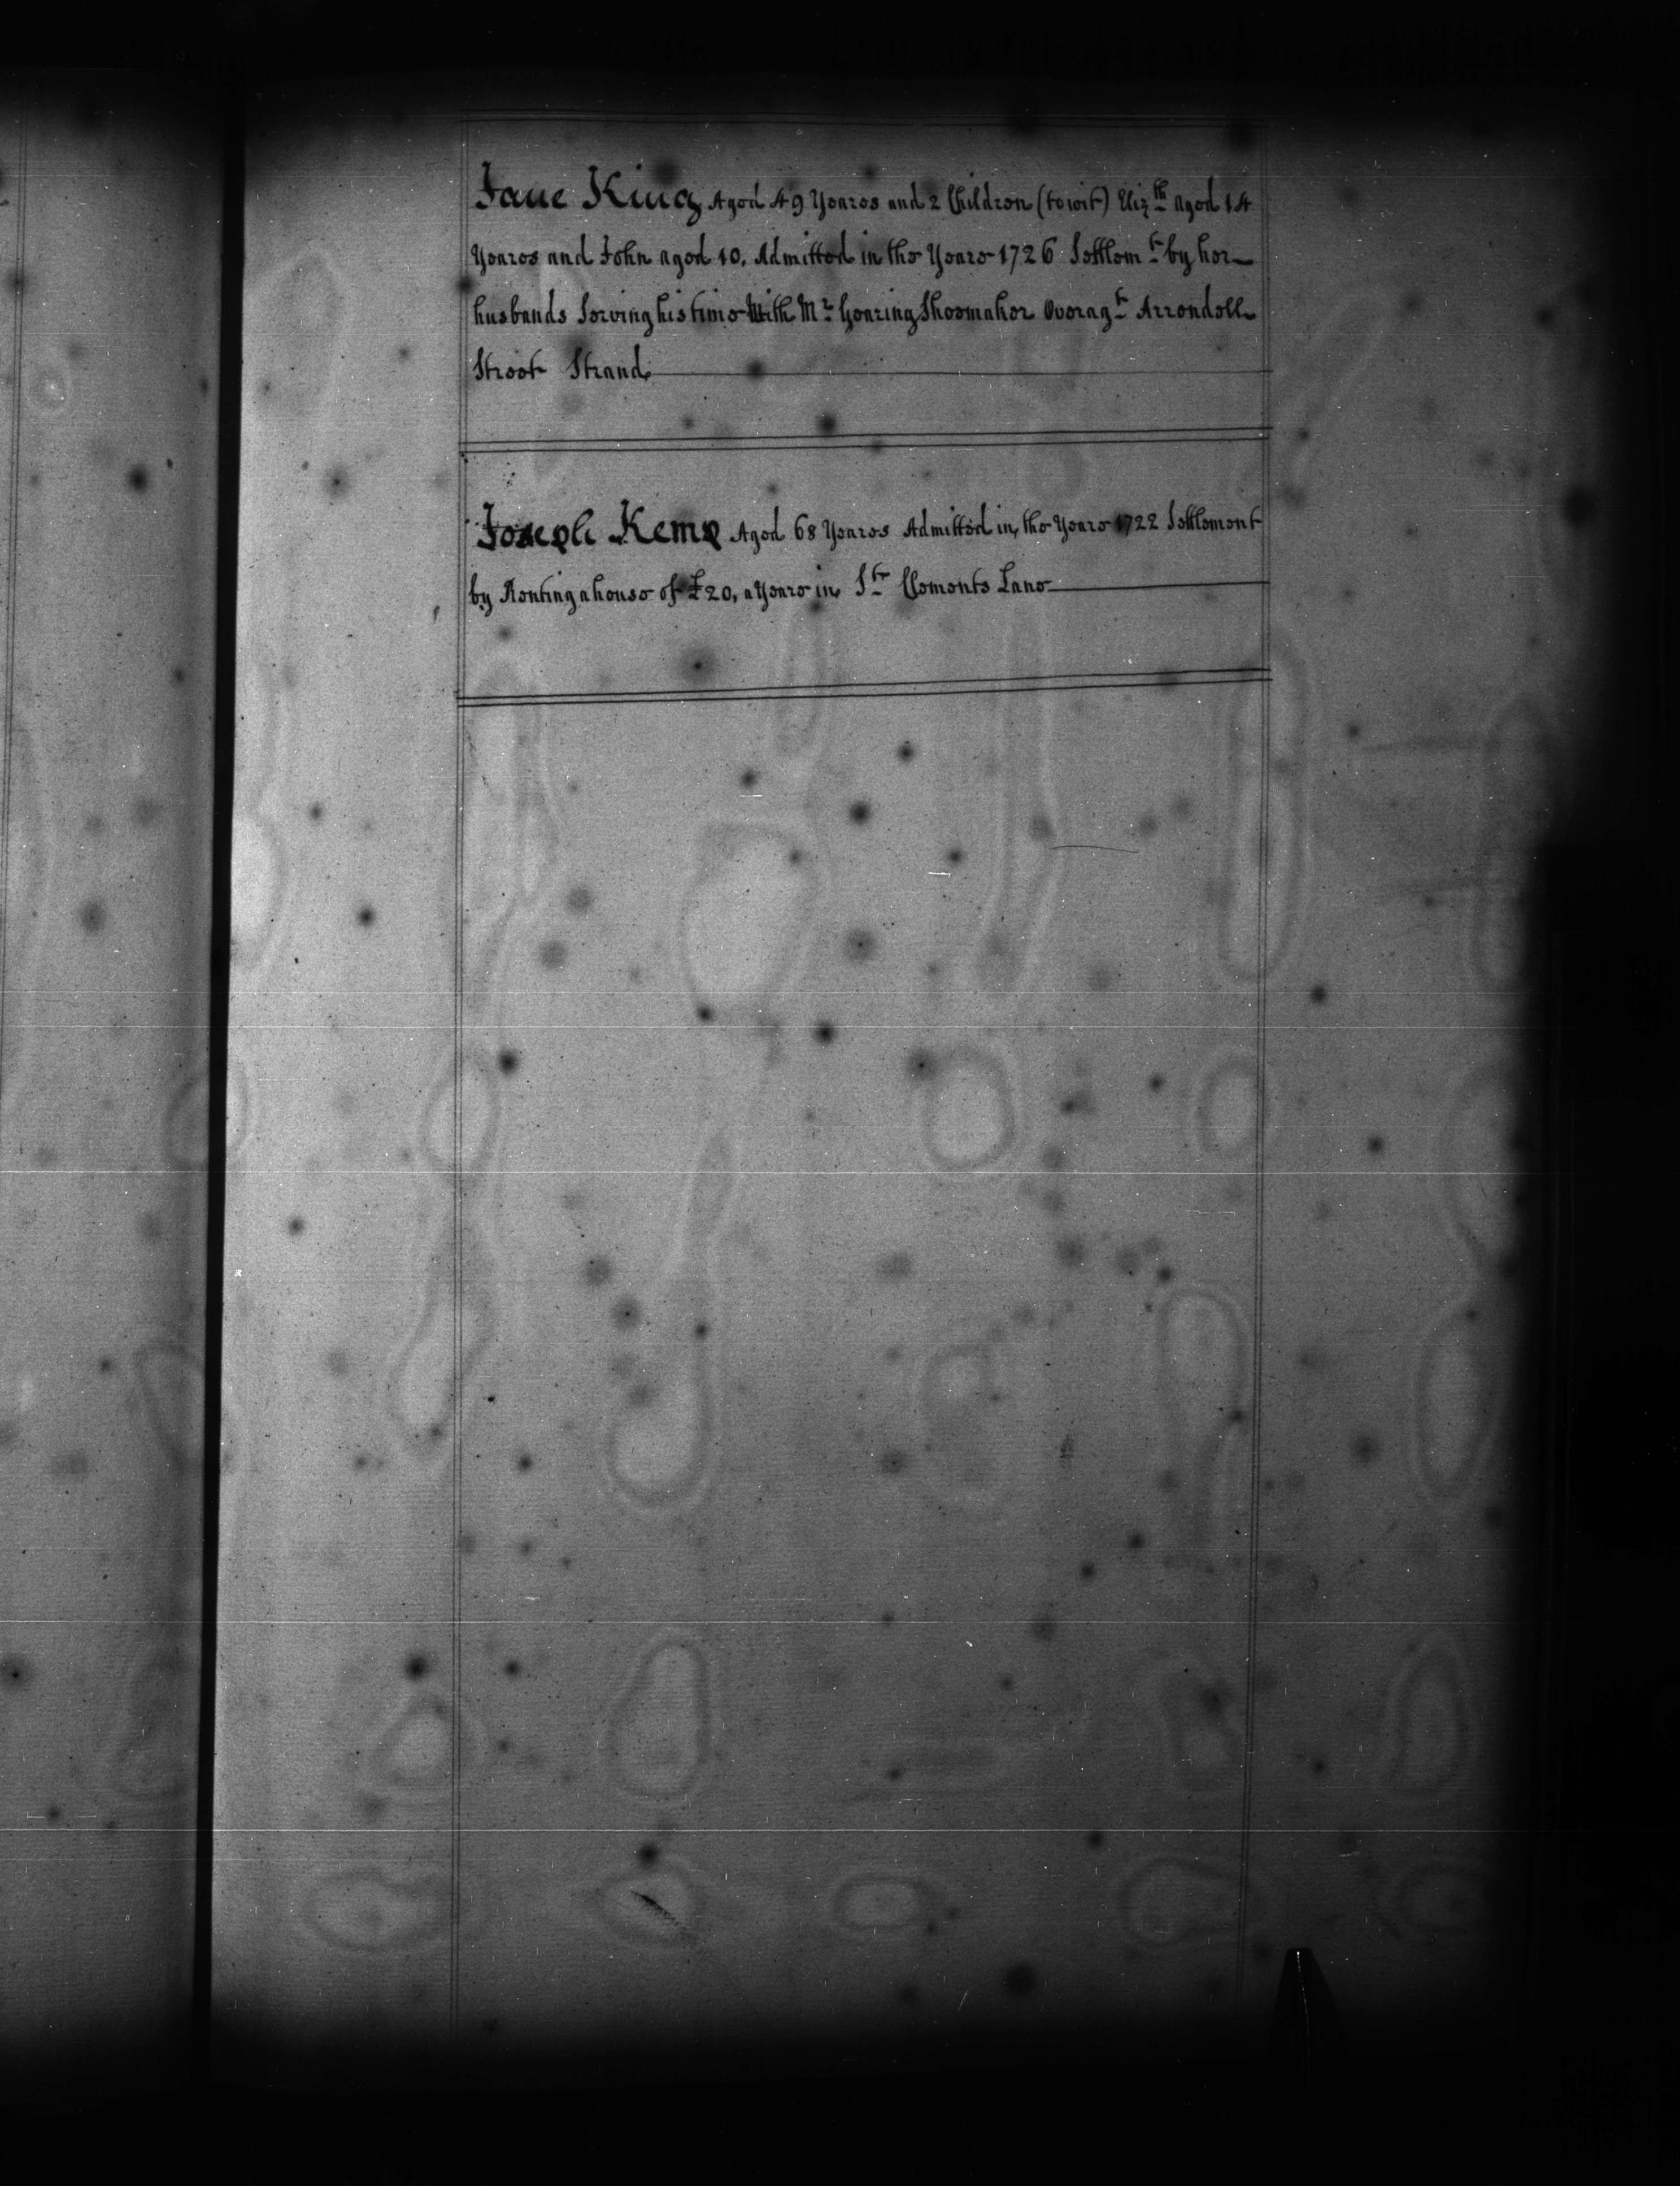 Jane King Aged 49 Yeares and 2 Children (to wit) Eliz.th aged 14
Yeares and John aged 10. Admitted in the Yeare 1726 Settlem.t by her
husbands Serving his time With M.r Gearing Shoemaker Overag.t Arrondell
Street Strand
Joseph Kemp Aged 68 Yeares Admitted in the Yeare 1722 Settlement
by Renting a house of £20, a Yeare in S.t Clements Lane